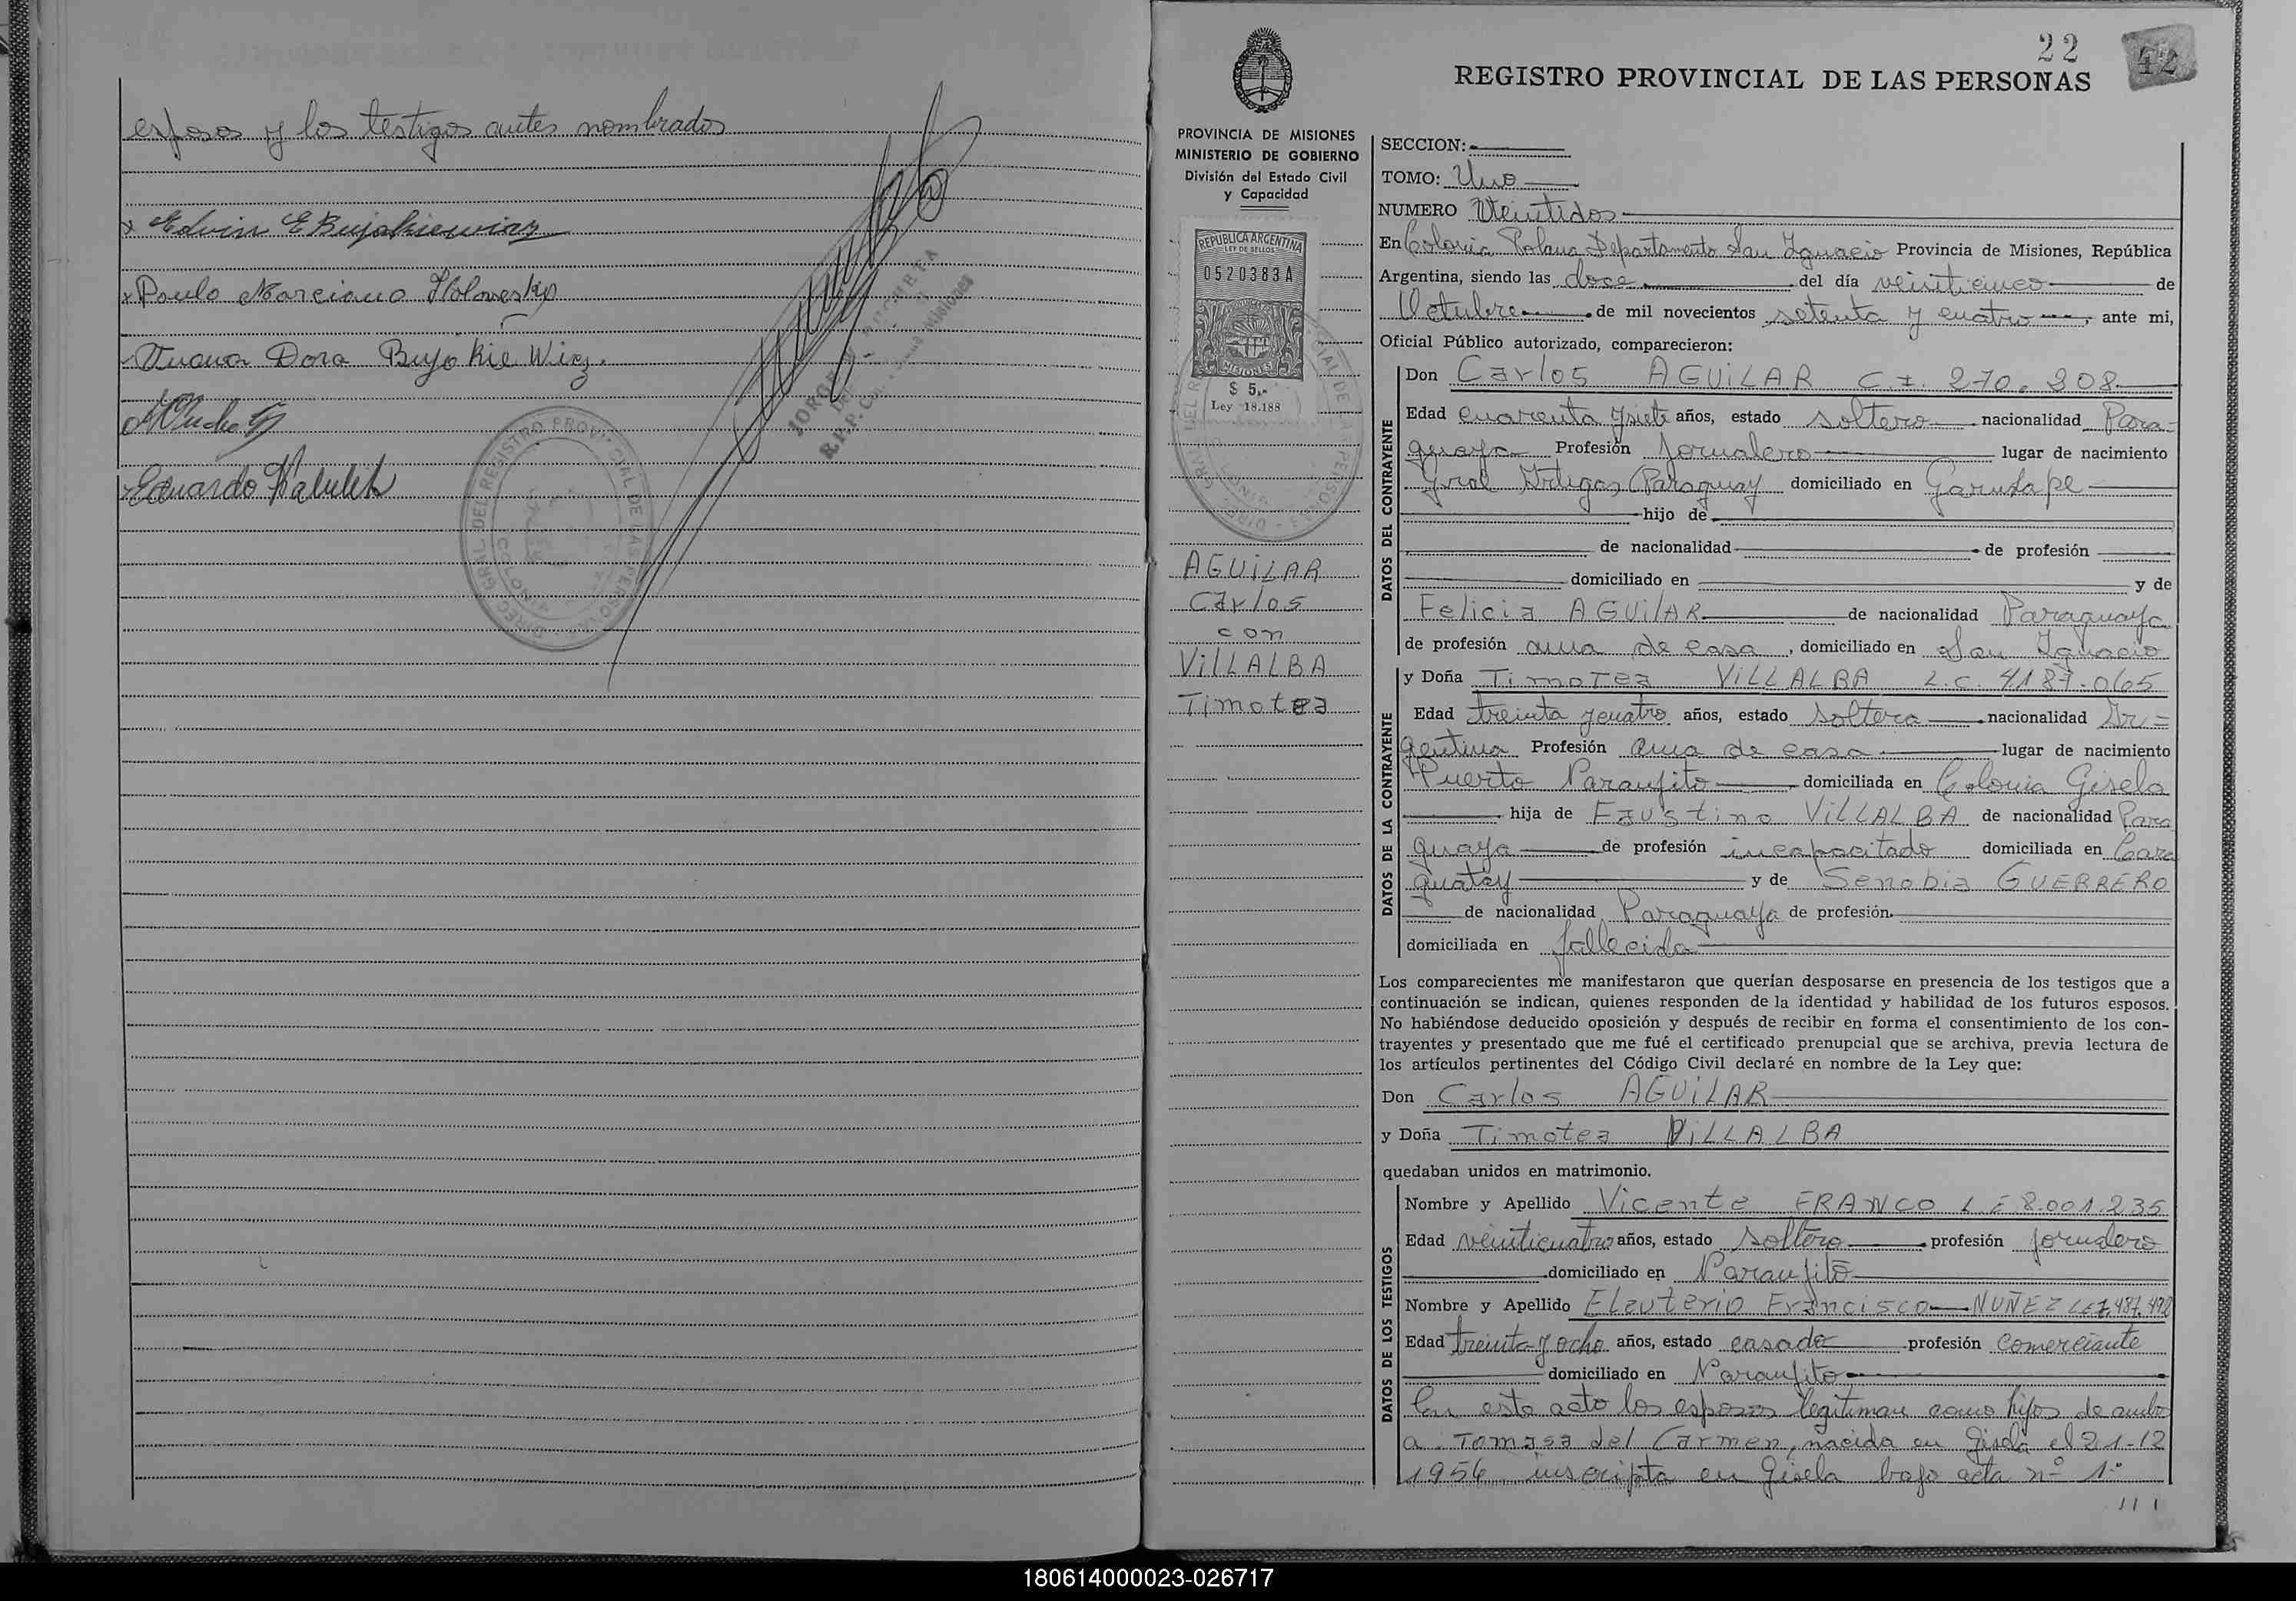 esposos y los testigos antes nombrados
Edvin E Bujakiewicz
Paulo Marciano Holowesko
Juana Dora Bujakiewicz.
Eduardo
DIREC. GRAL. DEL REGISTRO PROVINCIAL DE LAS PERSONAS
22
42
REGISTRO PROVINCIAL DE LAS PERSONAS
PROVINCIA DE MISIONES
MINISTERIO DE GOBIERNO
División del Estado Civil
y Capacidad
REPUBLICA ARGENTINA
LEY DE SELLOS
0520383A
MISIONES
$ 5,-
Ley 18.188
AGUILAR
Carlos
con
VILLALBA
Timotea
SECCION:
TOMO: Uno
NUMERO Veintidos
En Colonia Polana Departamento San Ignacio Provincia de Misiones, República
Argentina, siendo las doce del día veinticinco de
Octubre de mil novecientos setenta y cuatro, ante mi,
Oficial Público autorizado, comparecieron:
DATOS DEL CONTRAYENTE
Don Carlos AGUILAR C.I. 270.208
Edad cuarenta y siete años, estado soltero nacionalidad Para=
guaya Profesión Jornalero lugar de nacimiento
Gral Artigas (Paraguay domiciliado en Garuhape
hijo de
de nacionalidad de profesión
domiciliado en y de
Felicia AGUILAR de nacionalidad Paraguaya
de profesión ama de casa, domiciliado en San Ignacio
DATOS DE LA CONTRAYENTE
y Doña Timotea VILLALBA L.C. 4187.065
Edad treinta y cuatro años, estado soltera nacionalidad Ar=
gentina Profesión ama de casa lugar de nacimiento
Puerto Naranjito domiciliada en Colonia Gisela
hija de Faustino VILLALBA de nacionalidad Para
guaya de profesión incapacitado domiciliada en Cara
guatay y de Senobia GUERRERO
de nacionalidad Paraguaya de profesión
domiciliada en fallecida
Los comparecientes me manifestaron que querían desposarse en presencia de los testigos que a
continuación se indican, quienes responden de la identidad y habilidad de los futuros esposos.
No habiéndose deducido oposición y después de recibir en forma el consentimiento de los con-
trayentes y presentado que me fué el certificado prenupcial que se archiva, previa lectura de
los artículos pertinentes del Código Civil declaré en nombre de la Ley que:
Don Carlos AGUILAR
y Doña Timotea VILLALBA
quedaban unidos en matrimonio.
DATOS DE LOS TESTIGOS
Nombre y Apellido Vicente FRANCO L.E 8.001.235
Edad veinticuatro años, estado soltero profesión jornalero
domiciliado en Naranjito
Nombre y Apellido Eleuterio Francisco NUÑEZ LE 7.487.472
Edad treinta y ocho años, estado casado profesión comerciante
domiciliado en Naranjito
En este acto los esposos legitiman como hijos de ambos
a: Tomasa del Carmen, nacida en Gisela el 21-12
1956 inscripta en Gisela bajo acta nº 1º
///
180614000023-026717